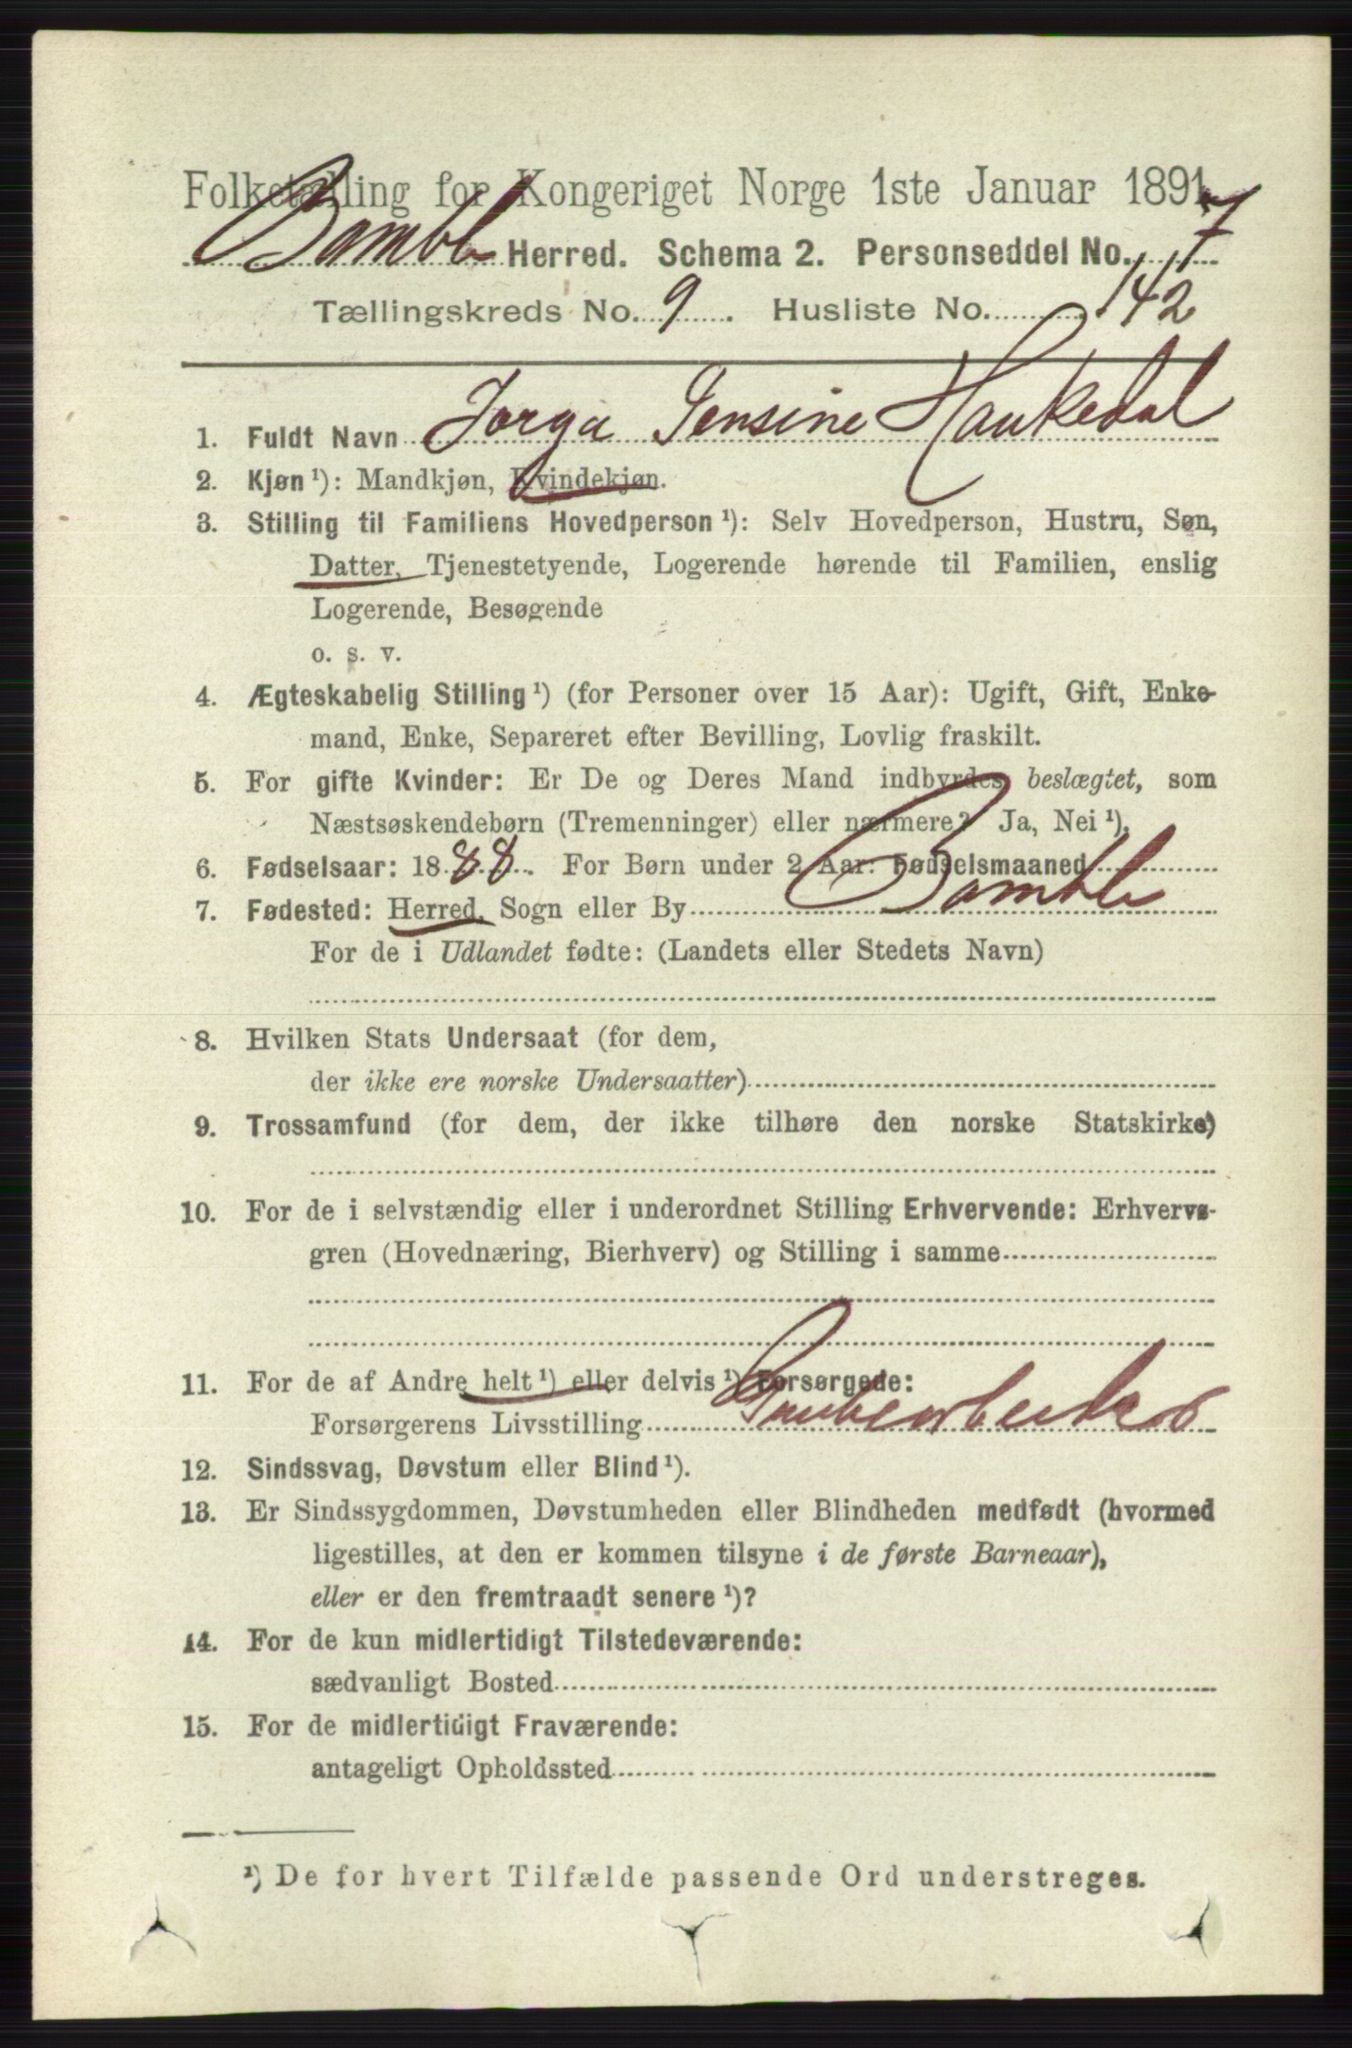 Folketælling for Kongeriget Norge 1ste Januar 1891.
Bamble Herred. Schema 2. Personseddel No. 7
Tællingskreds No. 9. Husliste No. 142
1. Fuldt Navn Jorga Jensine Haukedal
2. Kjøn ¹): Mandkjøn, Kvindekjøn.
3. Stilling til Familiens Hovedperson ¹): Selv Hovedperson, Hustru, Søn,
Datter, Tjenestetyende, Logerende hørende til Familien, enslig
Logerende, Besøgende
o. s. v.
4. Ægteskabelig Stilling ¹) (for Personer over 15 Aar): Ugift, Gift, Enke-
mand, Enke, Separeret efter Bevilling, Lovlig fraskilt.
5. For gifte Kvinder: Er De og Deres Mand indbyrdes beslægtet, som
Næstsøskendebørn (Tremenninger) eller nærmere? Ja, Nei ¹).
6. Fødselsaar: 1888. For Børn under 2 Aar: Fødselsmaaned
7. Fødested: Herred, Sogn eller By Bamble
For de i Udlandet fødte: (Landets eller Stedets Navn)
8. Hvilken Stats Undersaat (for dem,
der ikke ere norske Undersaatter)
9. Trossamfund (for dem, der ikke tilhøre den norske Statskirke)
10. For de i selvstændig eller i underordnet Stilling Erhvervende: Erhvervs-
gren (Hovednæring, Bierhverv) og Stilling i samme
11. For de af Andre helt ¹) eller delvis ¹) Forsørgede:
Forsørgerens Livsstilling Grubearbeider
12. Sindssvag, Døvstum eller Blind ¹).
13. Er Sindssygdommen, Døvstumheden eller Blindheden medfødt (hvormed
ligestilles, at den er kommen tilsyne i de første Barneaar),
eller er den fremtraadt senere ¹)?
14. For de kun midlertidigt Tilstedeværende:
sædvanligt Bosted
15. For de midlertidigt Fraværende:
antageligt Opholdssted
¹) De for hvert Tilfælde passende Ord understreges.